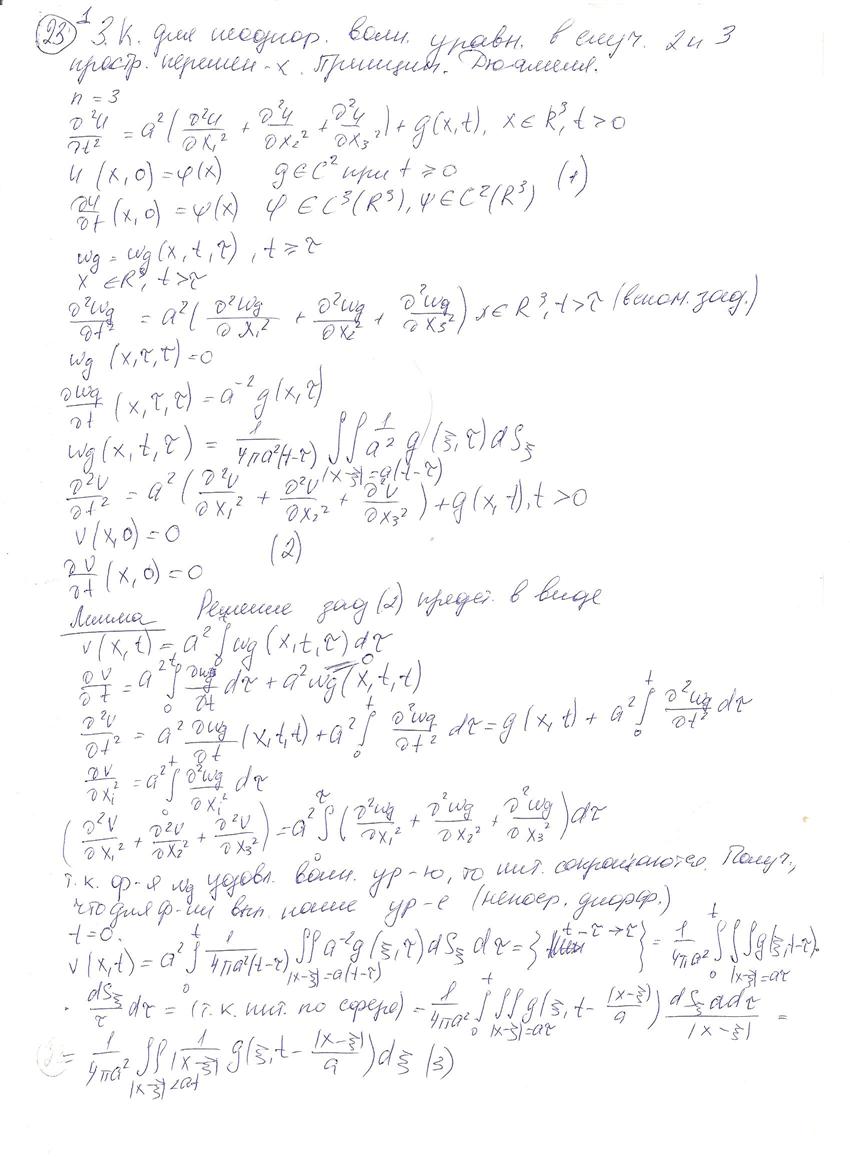 23 1 З.К. для неоднор. волн. уравн. в случ. 2 и 3
простр. перемен-х. Принцип. Дюамеля.
n = 3
∂²u/∂t² = a²(∂²u/∂x₁² + ∂²u/∂x₂² + ∂²u/∂x₃²) + g(x,t), x∈R³, t>0
u(x,0) = φ(x) g∈C² при t ≥ 0 (1)
∂u/∂t (x,0) = ψ(x) φ∈C³(R³), ψ∈C²(R³)
wg = wg(x,t,τ), t ≥ τ
x ∈R³, t>τ
∂²wg/∂t² = a²(∂²wg/∂x₁² + ∂²wg/∂x₂² + ∂²wg/∂x₃²) x∈R³, t>τ (вспом. зад.)
wg (x,τ,τ)=0
∂wg/∂t (x,τ,τ) = a⁻² g(x,τ)
wg(x,t,τ) = 1/(4πa²(t-τ)) ∬_{|x-ξ|=a(t-τ)} 1/a² g(ξ,τ)dS_ξ
∂²v/∂t² = a²(∂²v/∂x₁² + ∂²v/∂x₂² + ∂²v/∂x₃²) + g(x,t), t>0
v(x,0) = 0 (2)
∂v/∂t (x,0) = 0
Лемма Решение зад (2) предст. в виде
v(x,t) = a² ∫₀ᵗ wg(x,t,τ)dτ
∂v/∂t = a² ∫₀ᵗ ∂wg/∂t dτ + a² wg(x,t,t)
∂²v/∂t² = a² ∂wg/∂t (x,t,t) + a² ∫₀ᵗ ∂²wg/∂t² dτ = g(x,t) + a² ∫₀ᵗ ∂²wg/∂t² dτ
∂v/∂xᵢ² = a² ∫₀ᵗ ∂²wg/∂xᵢ² dτ
(∂²v/∂x₁² + ∂²v/∂x₂² + ∂²v/∂x₃²) = a² ∫₀^τ (∂²wg/∂x₁² + ∂²wg/∂x₂² + ∂²wg/∂x₃²)dτ
т.к. ф-я wg удовл. волн. ур-ю, то инт. сокращаются. Получ.,
что для ф-ии вып. наше ур-е (непоср. дифф.)
t=0.
v(x,t) = a² ∫₀ᵗ 1/(4πa²(t-τ)) ∬_{|x-ξ|=a(t-τ)} a⁻²g(ξ,τ)dS_ξ dτ = {t-τ→τ} = 1/(4πa²) ∫₀ᵗ ∬_{|x-ξ|=aτ} g(ξ,t-τ)·
· dS_ξ/τ dτ = (т.к. инт. по сфере) = 1/(4πa²) ∫₀ᵗ ∬_{|x-ξ|=aτ} g(ξ, t - |x-ξ|/a) dS_ξ adτ/|x-ξ| =
= 1/(4πa²) ∭_{|x-ξ|<at} 1/|x-ξ| g(ξ,t - |x-ξ|/a)dξ (3)